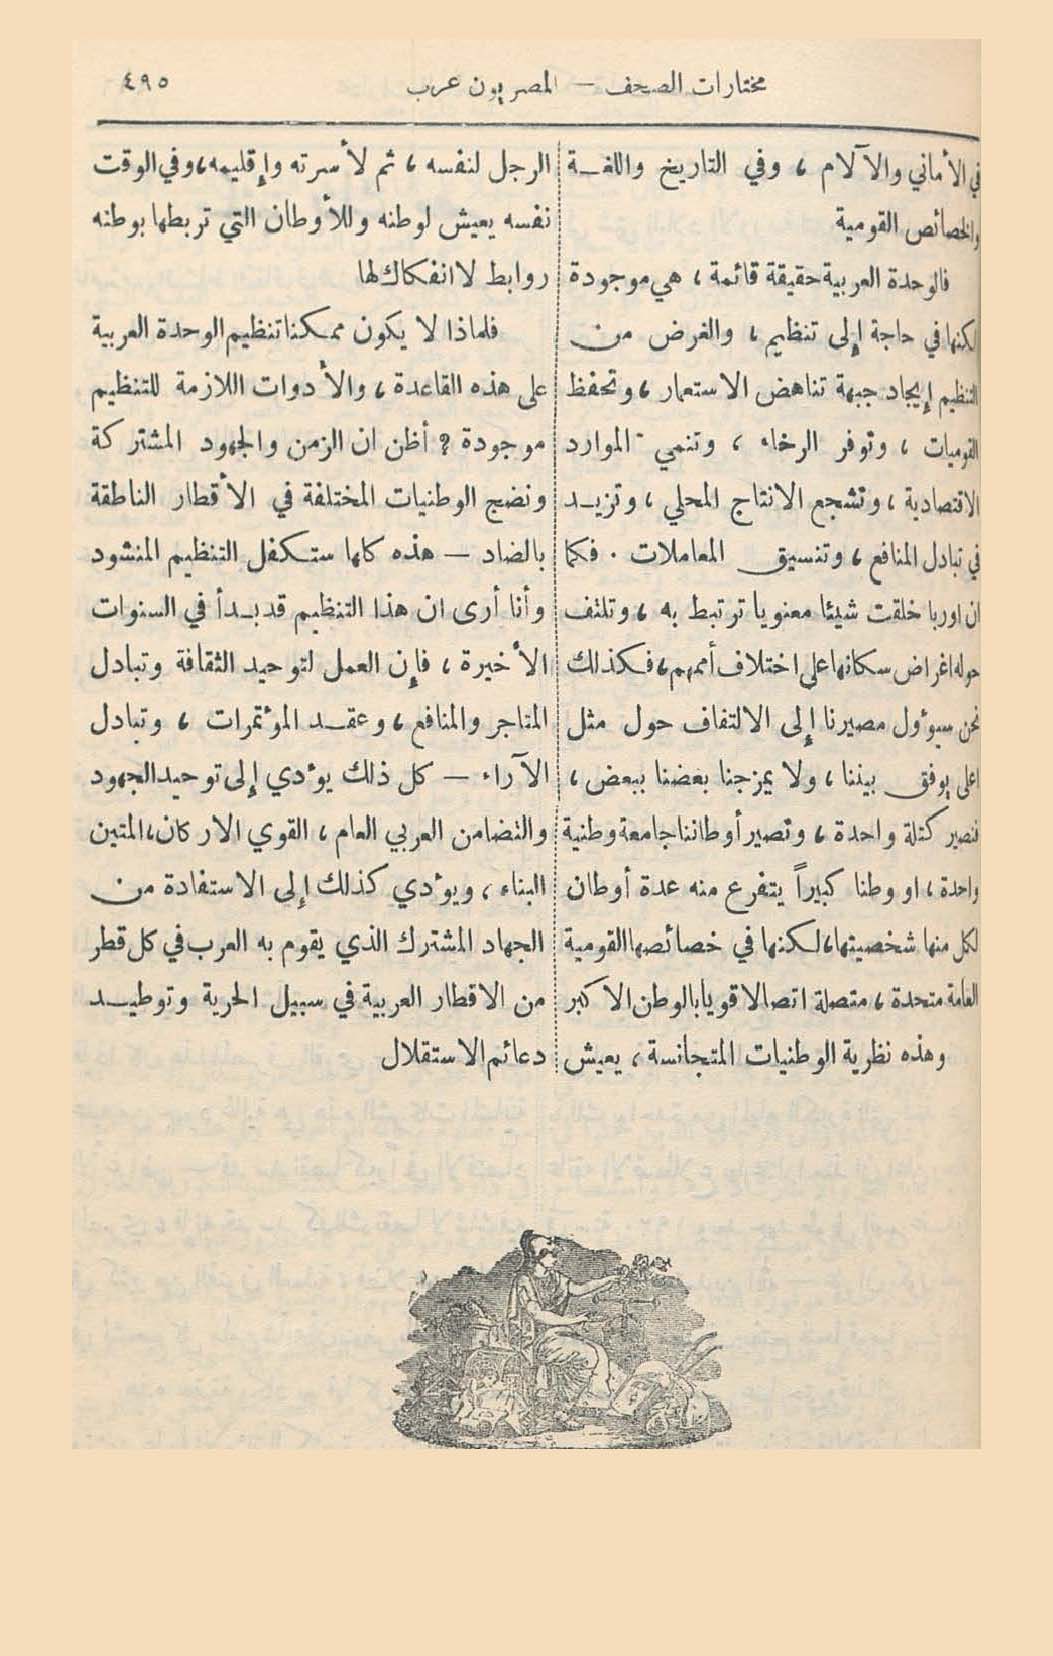 مختارات الصحف — المصريون عرب
٤٩٥
في الأماني والآلام ، وفي التاريخ واللغـة
والخصائص القومية
فالوحدة العربية حقيقة قائمة ، هي موجودة
لكنها في حاجة إلى تنظيم ، والغرض من
التنظيم إيجاد جبهة تناهض الاستعمار ، وتحفظ
القوميات ، وتوفر الرخاء ، وتنمي الموارد
الاقتصادية ، وتشجع الانتاج المحلي ، وتزيـد
في تبادل المنافع ، وتنسيق المعاملات . فكما
ان اوربا خلقت شيئا معنويا ترتبط به ، وتلتف
حوله اغراض سكانها على اختلاف أممهم ، فكذلك
نحن سيؤول مصيرنا إلى الالتفاف حول مثل
اعلى يوفق بيننا ، ولا يمزجنا بعضنا ببعض ،
فنصير كتلة واحدة ، وتصير أوطاننا جامعة وطنية
واحدة ، او وطنا كبيراً يتفرع منه عدة أوطان
لكل منها شخصيتها ، لكنها في خصائصها القومية
العامة متحدة ، متصلة اتصالا قويا بالوطن الاكبر
وهذه نظرية الوطنيات المتجانسة ، يعيش
الرجل لنفسه ، ثم لأسرته وإقليمه ، وفي الوقت
نفسه يعيش لوطنه وللأوطان التي تربطها بوطنه
روابط لا انفكاك لها
فلماذا لا يكون ممكنا تنظيم الوحدة العربية
على هذه القاعدة ، والأدوات اللازمة للتنظيم
موجودة ؟ أظن ان الزمن والجهود المشتركة
ونضج الوطنيات المختلفة في الأقطار الناطقة
بالضاد — هذه كلها ستكفل التنظيم المنشود
وأنا أرى ان هذا التنظيم قد بـدأ في السنوات
الأخيرة ، فإن العمل لتوحيد الثقافة وتبادل
المتاجر والمنافع ، وعقـد المؤتمرات ، وتبادل
الآراء — كل ذلك يؤدي إلى توحيد الجهود
والتضامن العربي العام ، القوي الاركان ، المتين
البناء ، ويؤدي كذلك إلى الاستفادة من
الجهاد المشترك الذي يقوم به العرب في كل قطر
من الاقطار العربية في سبيل الحرية وتوطيـد
دعائم الاستقلال